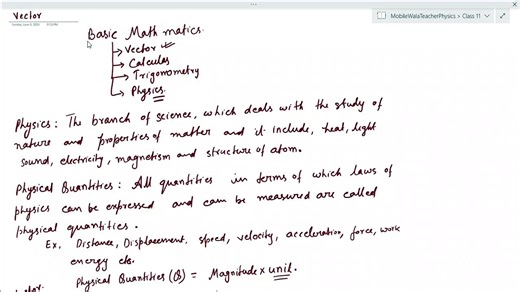 Vector
MobileWalaTeacherPhysics > Class 11
Basic Mathmatics.
→ Vector ✓
→ Calculas
→ Trigonometry
→ Physics.
Physics : The branch of science, which deals with the study of
nature and properties of matter and it include, heat, light
sound, electricity, magnetism and structure of atom.
Physical Quantities : All quantities in terms of which laws of
physics can be expressed and can be measured are called
physical quantities.
Ex, Distance, Displacement, speed, velocity, acceleration, force, work
energy etc.
Physical Quantities (Q) = Magnitude × unit.